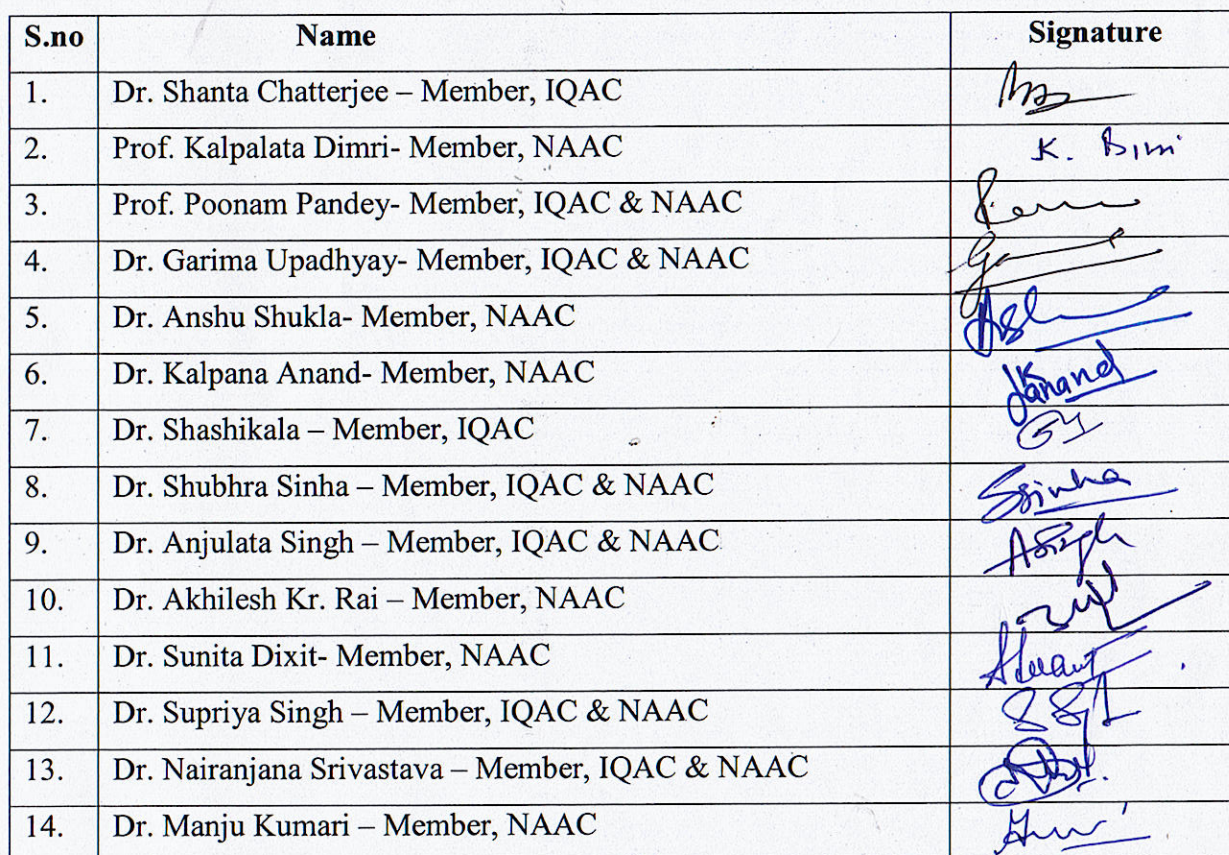 S.no Name Signature
1. Dr. Shanta Chatterjee – Member, IQAC
2. Prof. Kalpalata Dimri- Member, NAAC K.
3. Prof. Poonam Pandey- Member, IQAC & NAAC
4. Dr. Garima Upadhyay- Member, IQAC & NAAC
5. Dr. Anshu Shukla- Member, NAAC
6. Dr. Kalpana Anand- Member, NAAC KAnand
7. Dr. Shashikala – Member, IQAC
8. Dr. Shubhra Sinha – Member, IQAC & NAAC SSinha
9. Dr. Anjulata Singh – Member, IQAC & NAAC ASingh
10. Dr. Akhilesh Kr. Rai – Member, NAAC
11. Dr. Sunita Dixit- Member, NAAC
12. Dr. Supriya Singh – Member, IQAC & NAAC
13. Dr. Nairanjana Srivastava – Member, IQAC & NAAC
14. Dr. Manju Kumari – Member, NAAC